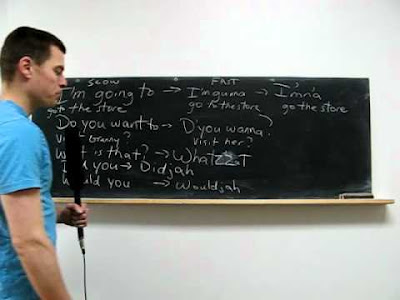 SLOW FAST
I'm going to → I'm gunna → I'm'a
go to the store go to the store go the store
Do you want to → D'you wanna
visit Granny? visit her?
What is that? → WhatzzaT
you → Didjah
Would you → Wouldjah